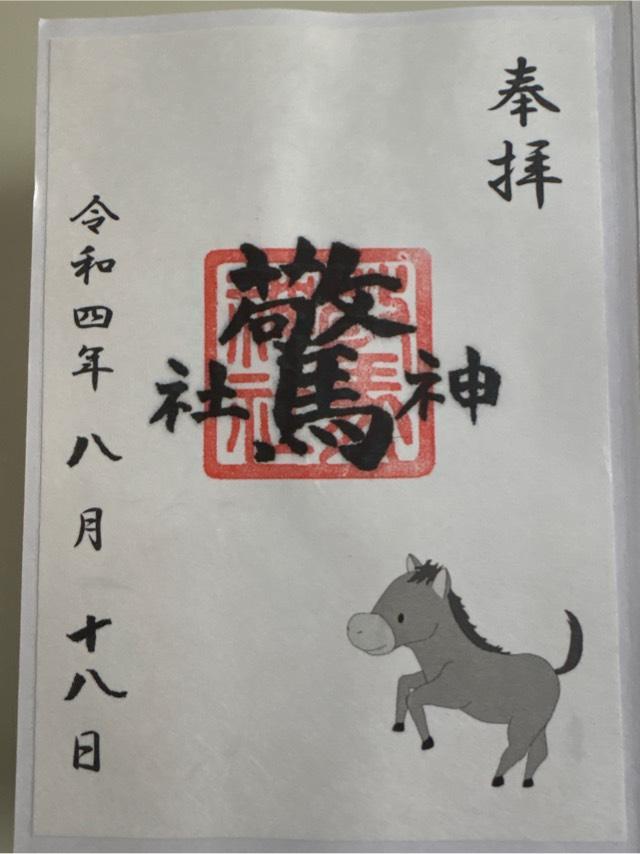 奉拝
驚神社
令和四年 八月 十八日